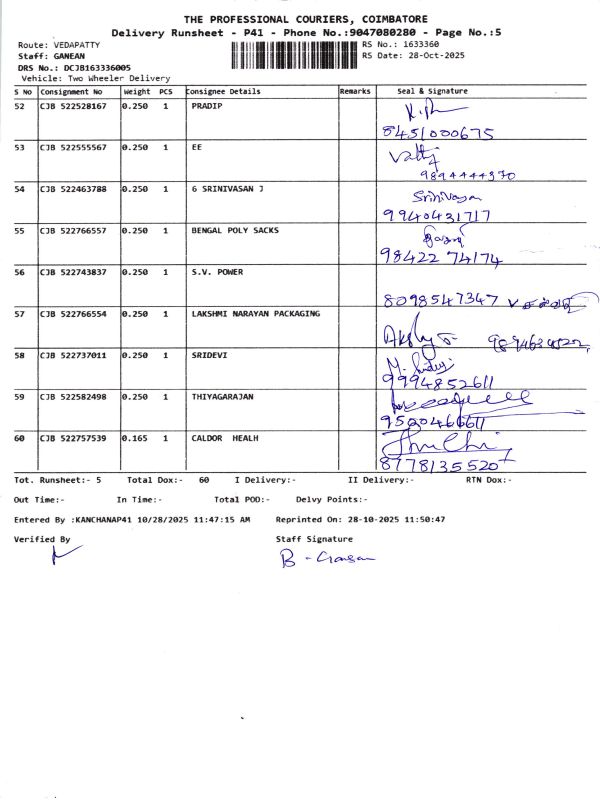 THE PROFESSIONAL COURIERS, COIMBATORE
Delivery Runsheet - P41 - Phone No.:9047080280 - Page No.:5
Route: VEDAPATTY RS No.: 1633360
Staff: GANEAN RS Date: 28-Oct-2025
DRS No.: DCJB163336005
Vehicle: Two Wheeler Delivery
S No Consignment No Weight PCS Consignee Details Remarks Seal & Signature
52 CJB 522528167 0.250 1 PRADIP
8451000675
53 CJB 522555567 0.250 1 EE
9894444370
54 CJB 522463788 0.250 1 6 SRINIVASAN J Srinivasan
9940431717
55 CJB 522766557 0.250 1 BENGAL POLY SACKS
98422 74174
56 CJB 522743837 0.250 1 S.V. POWER
8098547347
57 CJB 522766554 0.250 1 LAKSHMI NARAYAN PACKAGING
58 CJB 522737011 0.250 1 SRIDEVI
9994852611
59 CJB 522582498 0.250 1 THIYAGARAJAN
9500466611
60 CJB 522757539 0.165 1 CALDOR HEALH
8778135520
Tot. Runsheet:- 5 Total Dox:- 60 I Delivery:- II Delivery:- RTN Dox:-
Out Time:- In Time:- Total POD:- Delvy Points:-
Entered By :KANCHANAP41 10/28/2025 11:47:15 AM Reprinted On: 28-10-2025 11:50:47
Verified By Staff Signature